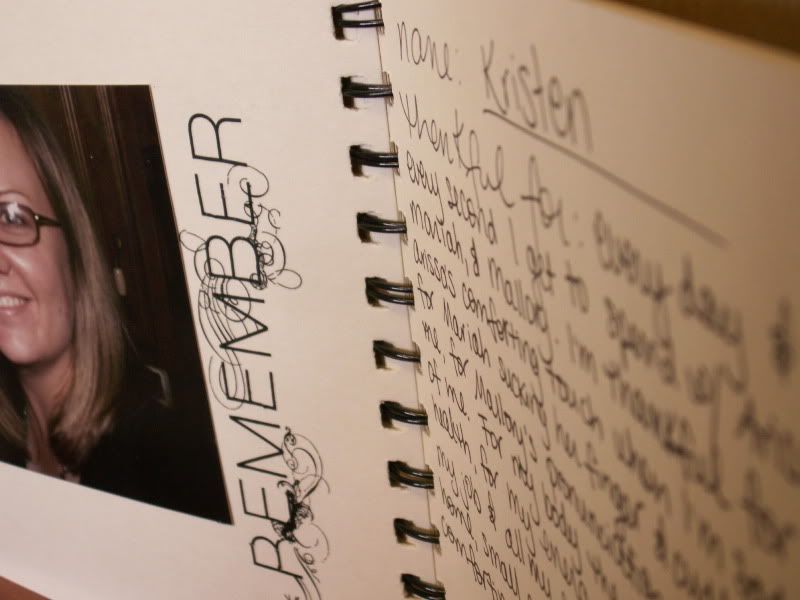 REMEMBER
name: Kristen
thankful for: every day &
every second I get to spend w/
mariah, & mallory. I'm thankful for
arissas comforting touch when I'm
for Mariah sucking her finger &
me, for Mallory's pronunciation
at me. For my body
health, for my
my job & all my
home, small